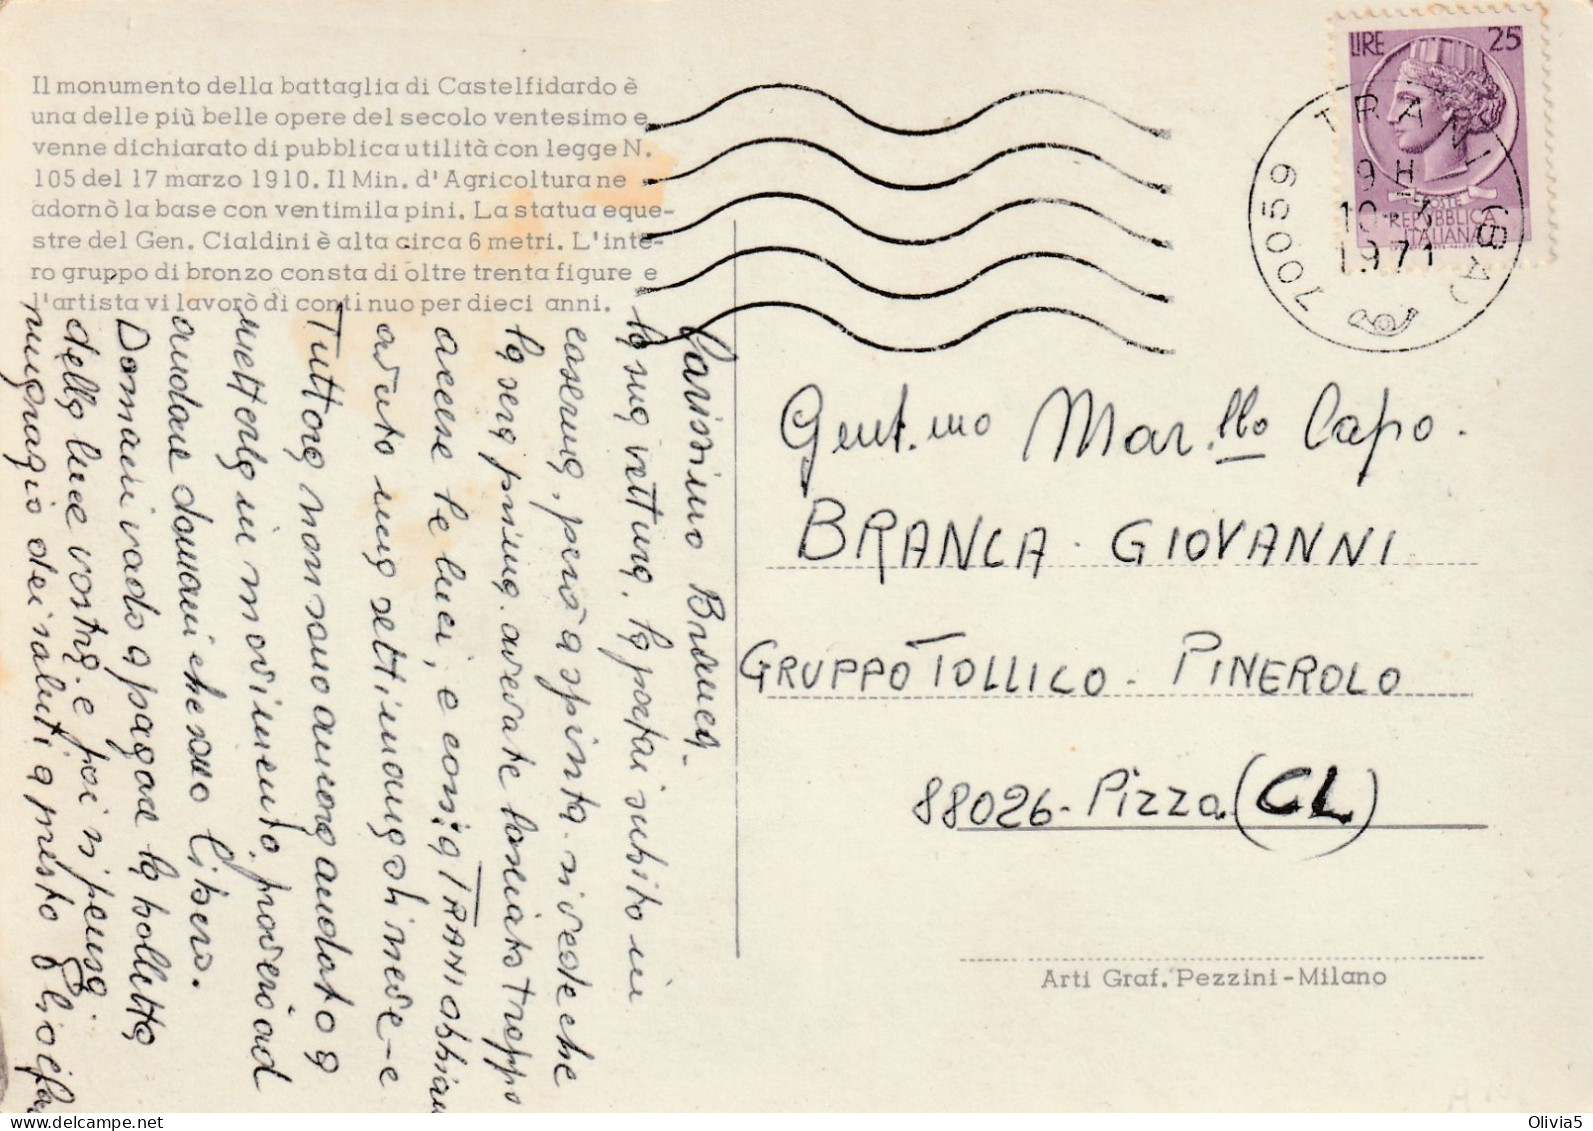 Il monumento della battaglia di Castelfidardo è
una delle più belle opere del secolo ventesimo e
venne dichiarato di pubblica utilità con legge N.
105 del 17 marzo 1910. Il Min. d'Agricoltura ne
adornò la base con ventimila pini. La statua eque-
stre del Gen. Cialdini è alta circa 6 metri. L'inte-
ro gruppo di bronzo consta di oltre trenta figure e
l'artista vi lavorò di continuo per dieci anni.
Carissimo Branca -
la sua vettura. la portai subito in
caserma, però a spinta. si vede che
la sera prima. avevate lasciato troppo
accese le luci, e così a TRANI abbiam
avuto una settimana di neve - e
Tuttora non sono ancora andato a
metterla in movimento. proverò ad
andare domani che sono libero.
Domani vado a pagare la bolletta
della luce vostra. e poi si pensa.
ringrazio dei saluti a presto
LIRE 25
POSTE
REPUBBLICA
ITALIANA
70059 TRANI (BA)
9H
10-3
1971
Gent.mo Mar.llo Capo.
BRANCA - GIOVANNI
GRUPPO TOLLICO - PINEROLO
88026 - Pizza (CL)
Arti Graf. Pezzini - Milano
Olivia5